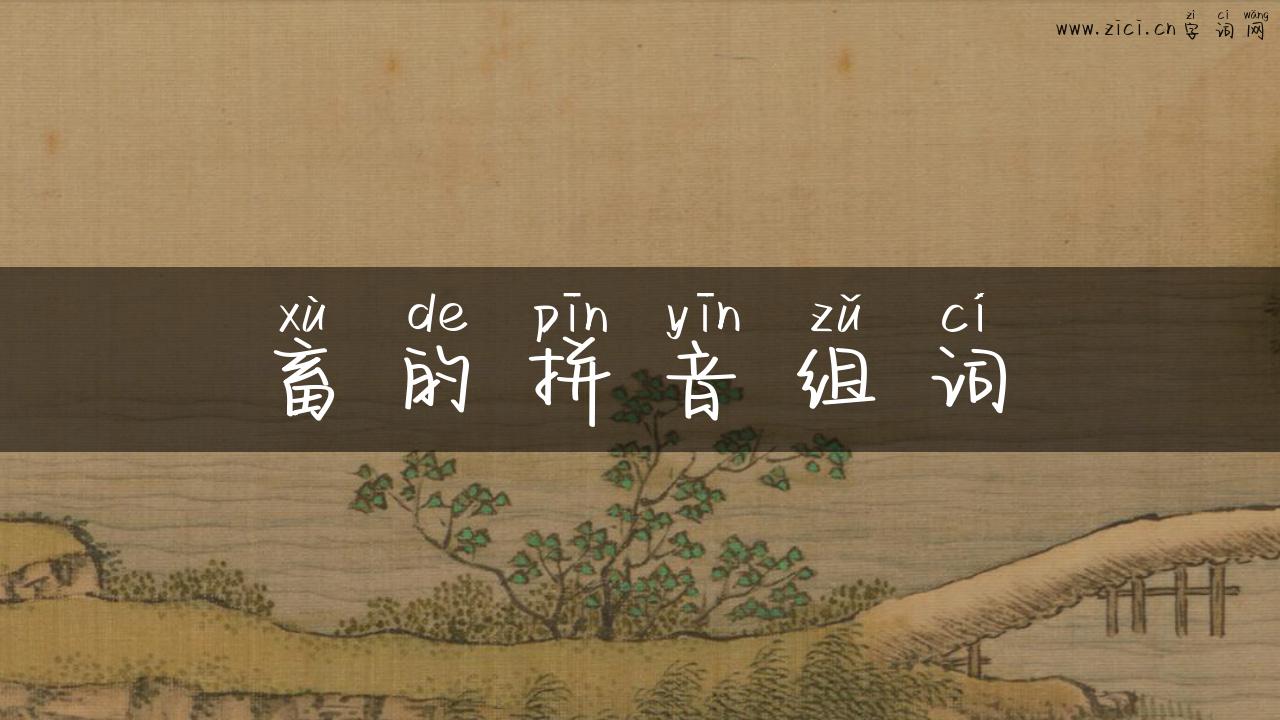 zì cí wǎng
www.zici.cn 字词网
xù de pīn yīn zǔ cí
畜的拼音组词